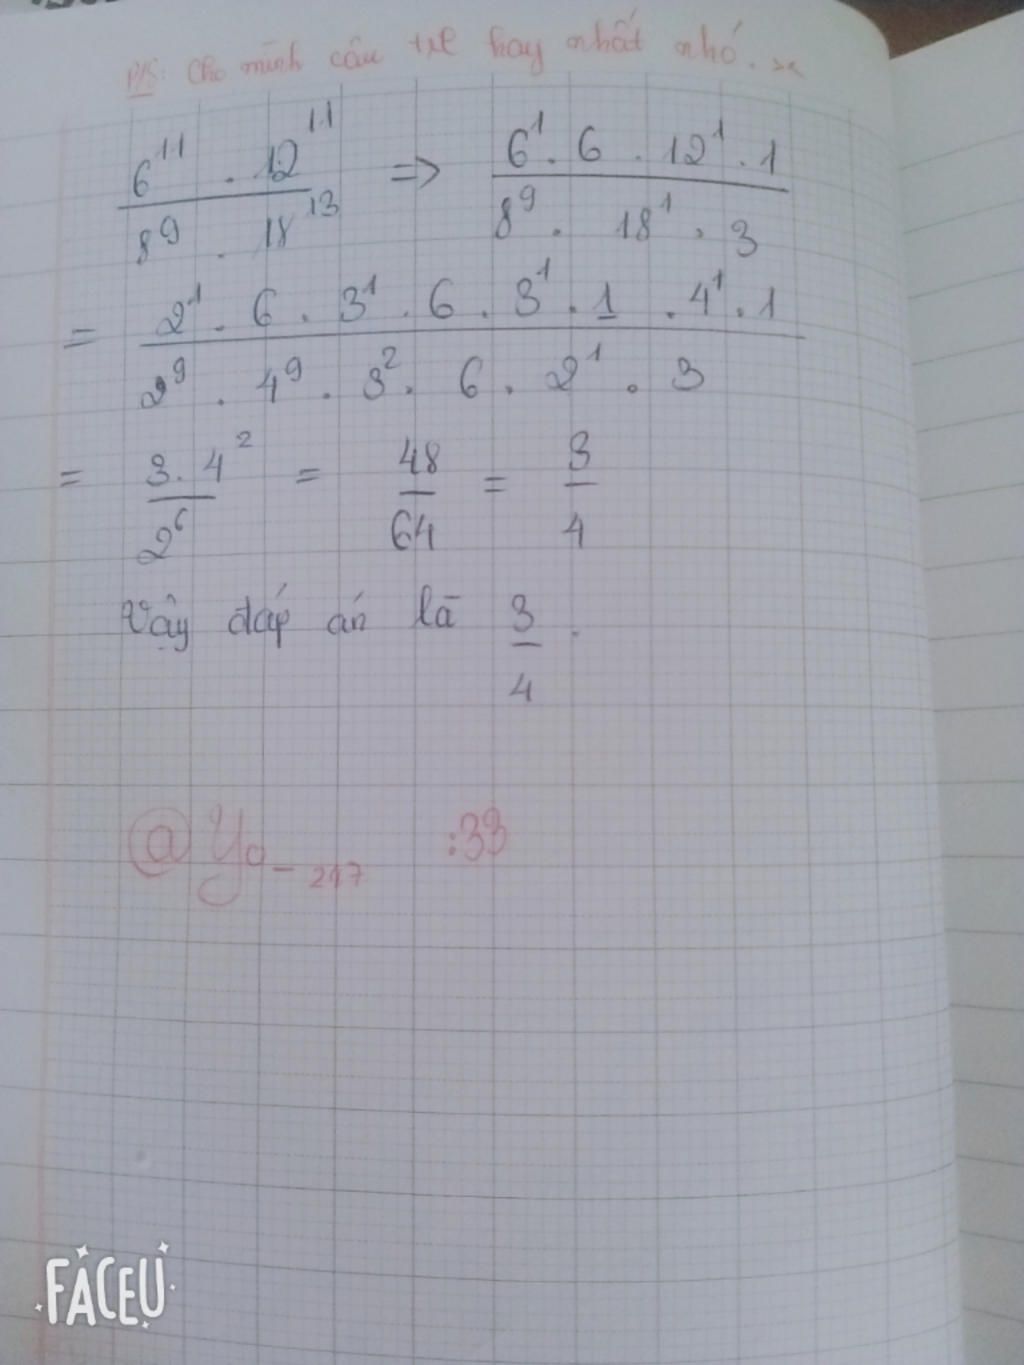 P/S: Cho mình câu trl hay nhất nhó. ><
6^11 . 12^11 / 8^9 . 18^13 => 6^1 . 6 . 12^1 . 1 / 8^9 . 18^1 . 3
= 2^1 . 6 . 3^1 . 6 . 3^1 . 1 . 4^1 . 1 / 2^9 . 4^9 . 3^2 . 6 . 2^1 . 3
= 3 . 4^2 / 2^6 = 48 / 64 = 3 / 4
Vậy đáp án là 3 / 4 .
@ Yo_247 :33
FACEU